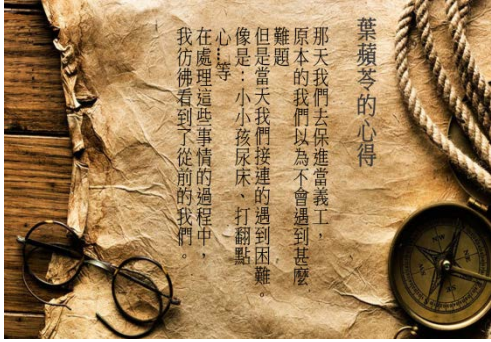 葉蘋苓的心得
那天我們去保進當義工，
原本的我們以為不會遇到甚麼
難題，
但是當天我們接連的遇到困難。
像是：小小孩尿床、打翻點
心…等
在處理這些事情的過程中，
我彷彿看到了從前的我們。